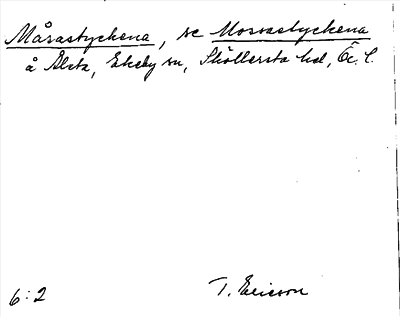 Måsastyckena, se Mossastyckena
å Älsta, Ekeby sn, Sköllersta hd, Ör. l.
6:2 T. Ericson